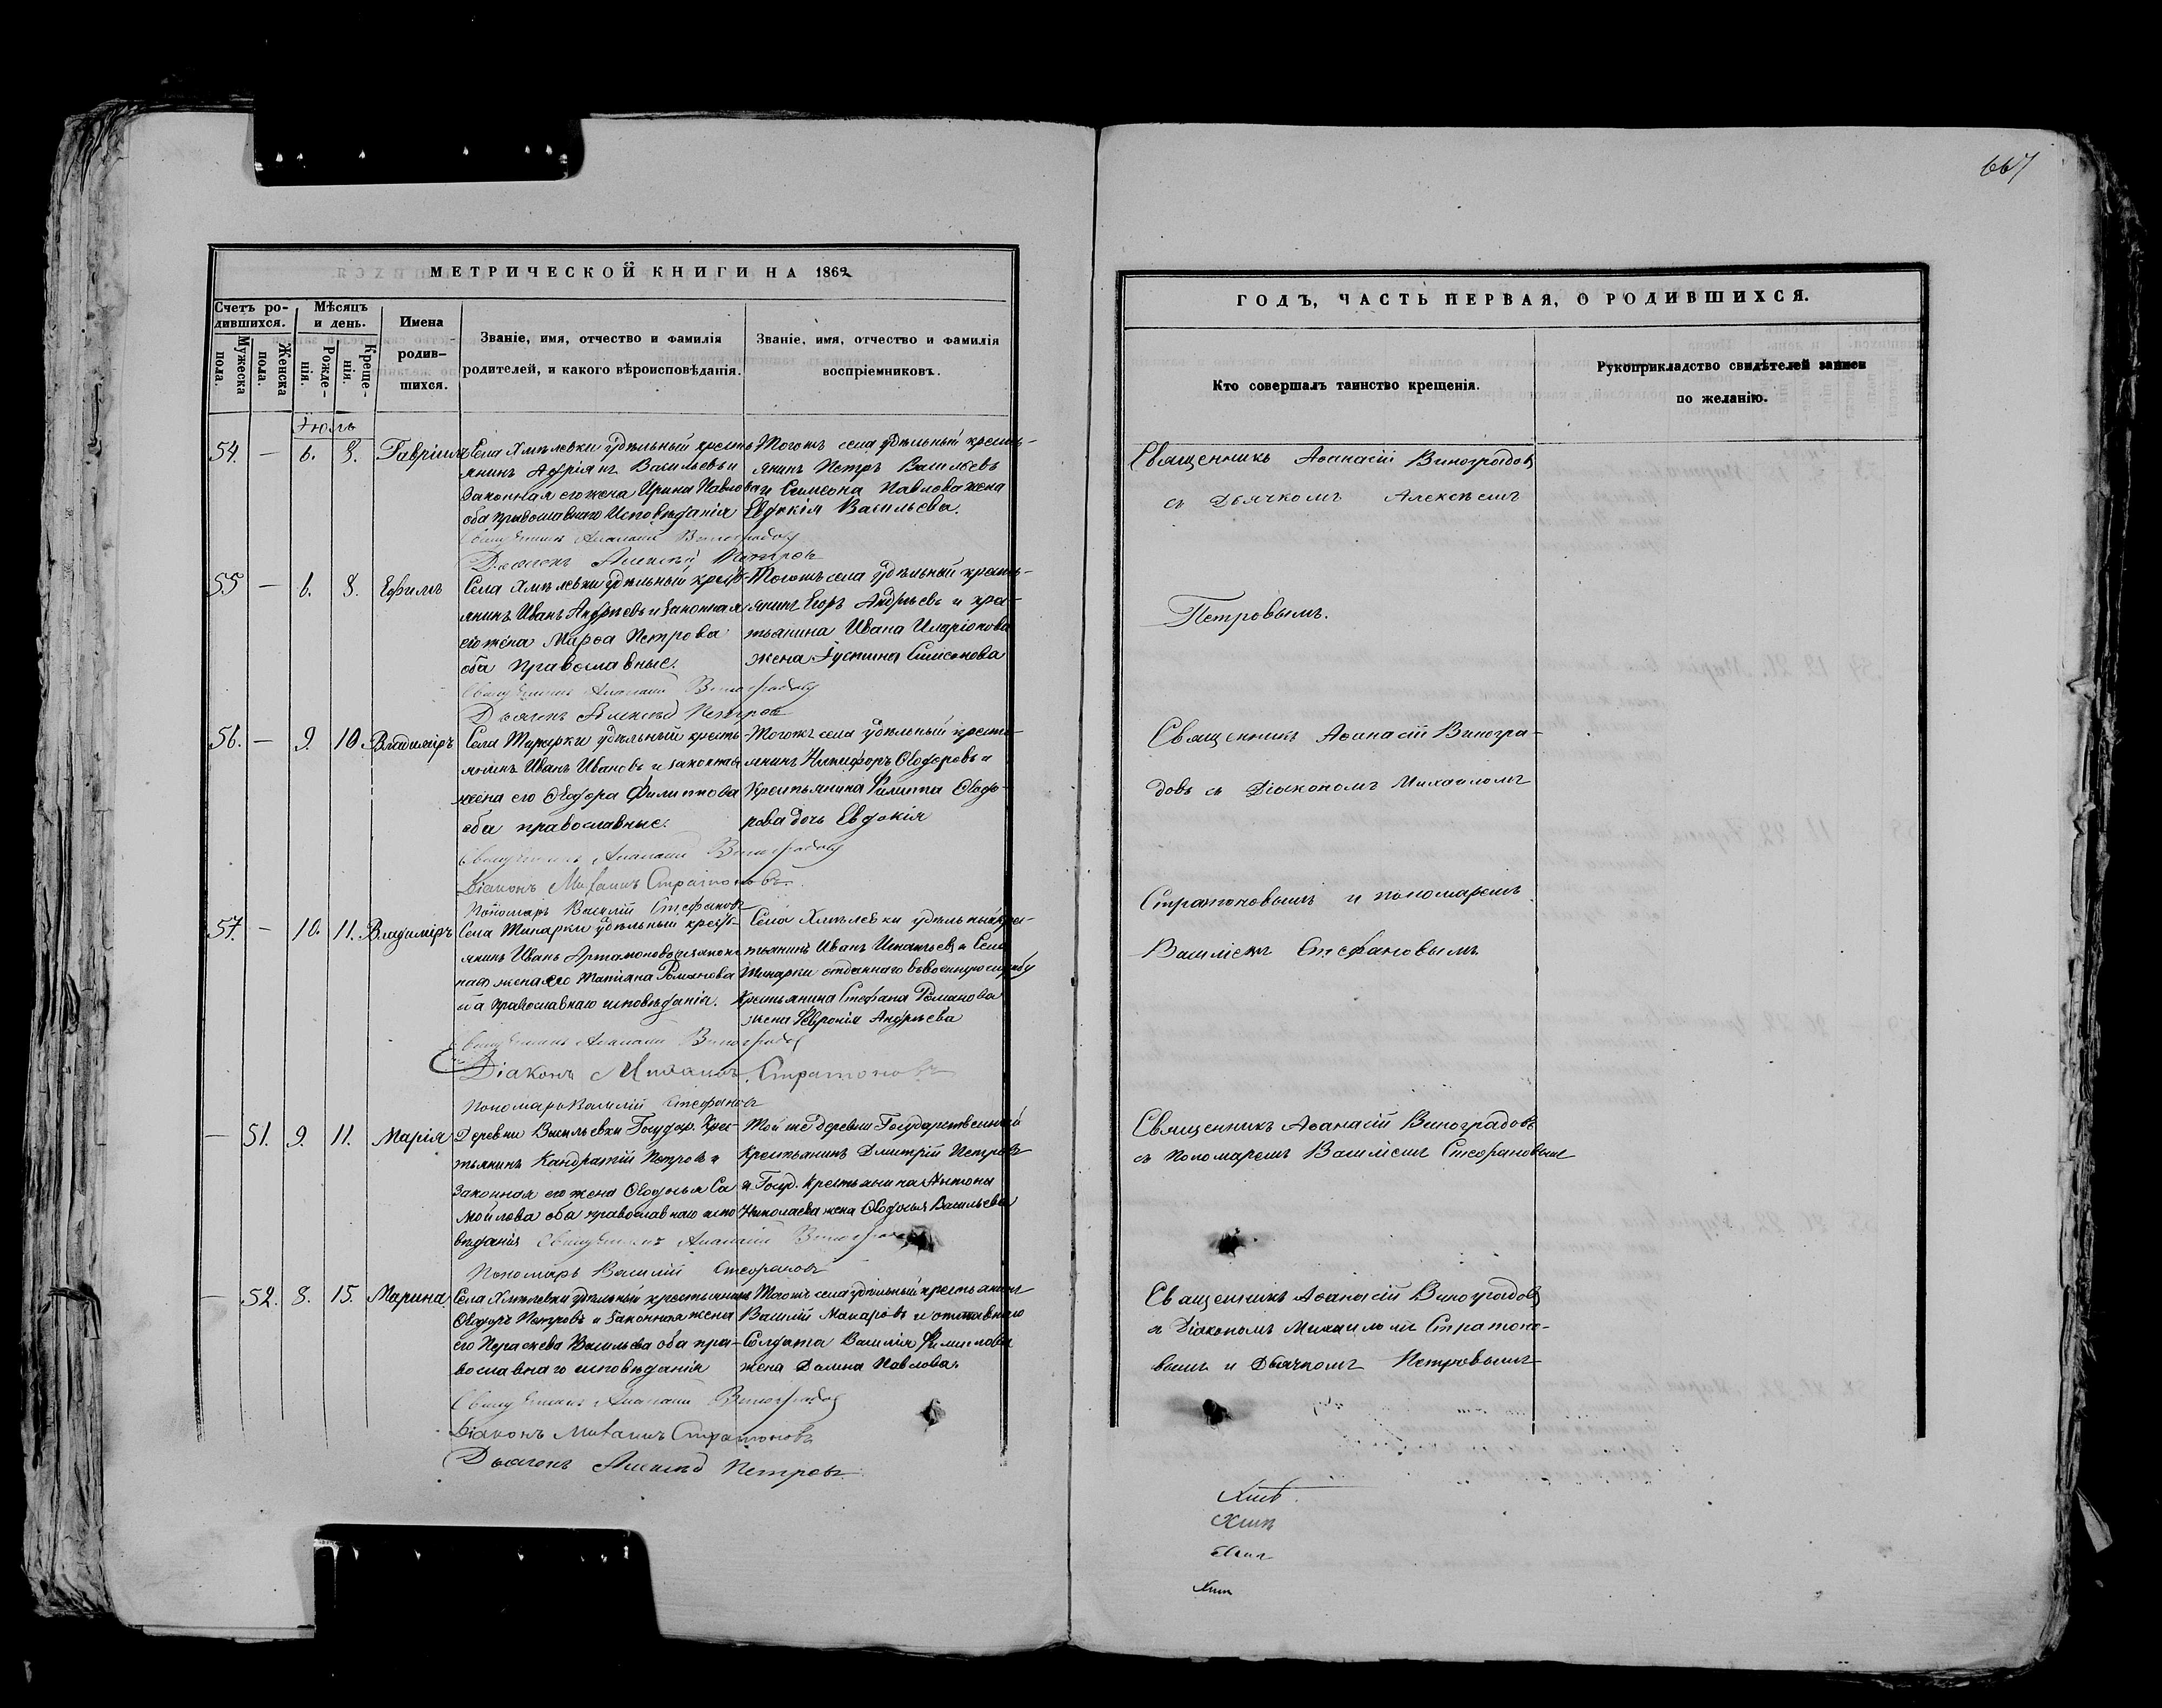 667
МЕТРИЧЕСКОЙ КНИГИ НА 1862
Счетъ родившихся.
Мужеска пола.
Женска пола.
Мѣсяцъ и день.
Рожденія.
Крещенія.
Имена родившихся.
Званіе, имя, отчество и фамилія
родителей, и какого вѣроисповѣданія.
Званіе, имя, отчество и фамилія
воспріемниковъ.
Іюль
54. — 6. 8. Гавріилъ
Села Хмѣлевки удѣльный кресть
янинъ Адріянъ Васильевъ и
законная его жена Ирина Павлова
оба православнаго исповѣданія
Тогожъ села удѣльный кресть-
янинъ Петръ Васильевъ
и Симеона Павлова жена
Евдокія Васильева.
Священникъ Аѳанасій Виноградовъ
Дьячекъ Алексѣй Петровъ
55 — 6. 8. Ефимъ
Села Хмѣлевки удѣльный крест-
янинъ Иванъ Андреевъ и законная
его жена Марѳа Петрова
оба православные.
Тогожъ села удѣльный кресть-
янинъ Егоръ Андреевъ и кре-
тьянина Ивана Иларіонова
жена Іустина Симеонова
Священникъ Аѳанасій Виноградовъ
Дьячекъ Алексѣй Петровъ
56. — 9. 10. Владиміръ
удѣльный кресть-
янинъ Иванъ Ивановъ и законная
жена его Ѳеодора Филиппова
оба православные.
Тогожъ села удѣльный кресть-
янинъ Никифоръ Ѳеодоровъ и
Крестьянина Филиппа Ѳеодо-
рова дочь Евдокія
Священникъ Аѳанасій Виноградовъ
Діаконъ Михаилъ Стратоновъ.
Пономарь Василій Стефановъ
57. — 10. 11. Владиміръ
удѣльный крест-
янинъ Иванъ Артамоновъ и закон
ная жена его Татіяна Романова
оба православнаго исповѣданія.
Села Хмѣлевки удѣльный крес-
тьянинъ Иванъ Игнатьевъ и Села
отданнаго въ военную службу
Крестьянина Стефана Романова
жена Феврония Андреева
Священникъ Аѳанасій Виноградовъ
Діаконъ Михаилъ Стратоновъ
Пономарь Василій Стефановъ
— 51. 9. 11. Марія
Деревни Васильевки Государ. Крес-
тьянинъ Кандратій Петровъ и
законная его жена Ѳеодосья Са
мойлова оба православнаго испо
вѣданія
Той же деревни Государственный
крестьянинъ Димитрій Петровъ
и Госуд. крестьянина Антона
Николаева жена Ѳеодосья Васильева
Священникъ Аѳанасій Виноградовъ
Пономарь Василій Стефановъ
— 52. 8. 15. Марина
Села Хмѣлевки удѣльный крестьянинъ
Ѳеодоръ Петровъ и законная жена
его Параскева Васильева оба пра-
вославнаго исповѣданія
Тогожъ села удѣльный крестьянинъ
Василій Макаровъ и отставнаго
Солдата Василія
жена Домна Павлова.
Священникъ Аѳанасій Виноградовъ
Діаконъ Михаилъ Стратоновъ
Дьячекъ Алексѣй Петровъ
ГОДЪ, ЧАСТЬ ПЕРВАЯ, О РОДИВШИХСЯ.
Кто совершалъ таинство крещенія.
Рукоприкладство свидѣтелей записи
по желанію.
Священникъ Аѳанасій Виноградовъ
съ Дьячкомъ Алексѣемъ
Петровымъ.
Священникъ Аѳанасій Виногра-
довъ съ Діакономъ Михаиломъ
Стратоновымъ и пономаремъ
Василіемъ Стефановымъ
Священникъ Аѳанасій Виноградовъ
съ Пономаремъ Василіемъ Стефановымъ
Священникъ Аѳанасій Виноградовъ
съ Діакономъ Михаиломъ Стратоно-
вымъ и Дьячкомъ Петровымъ